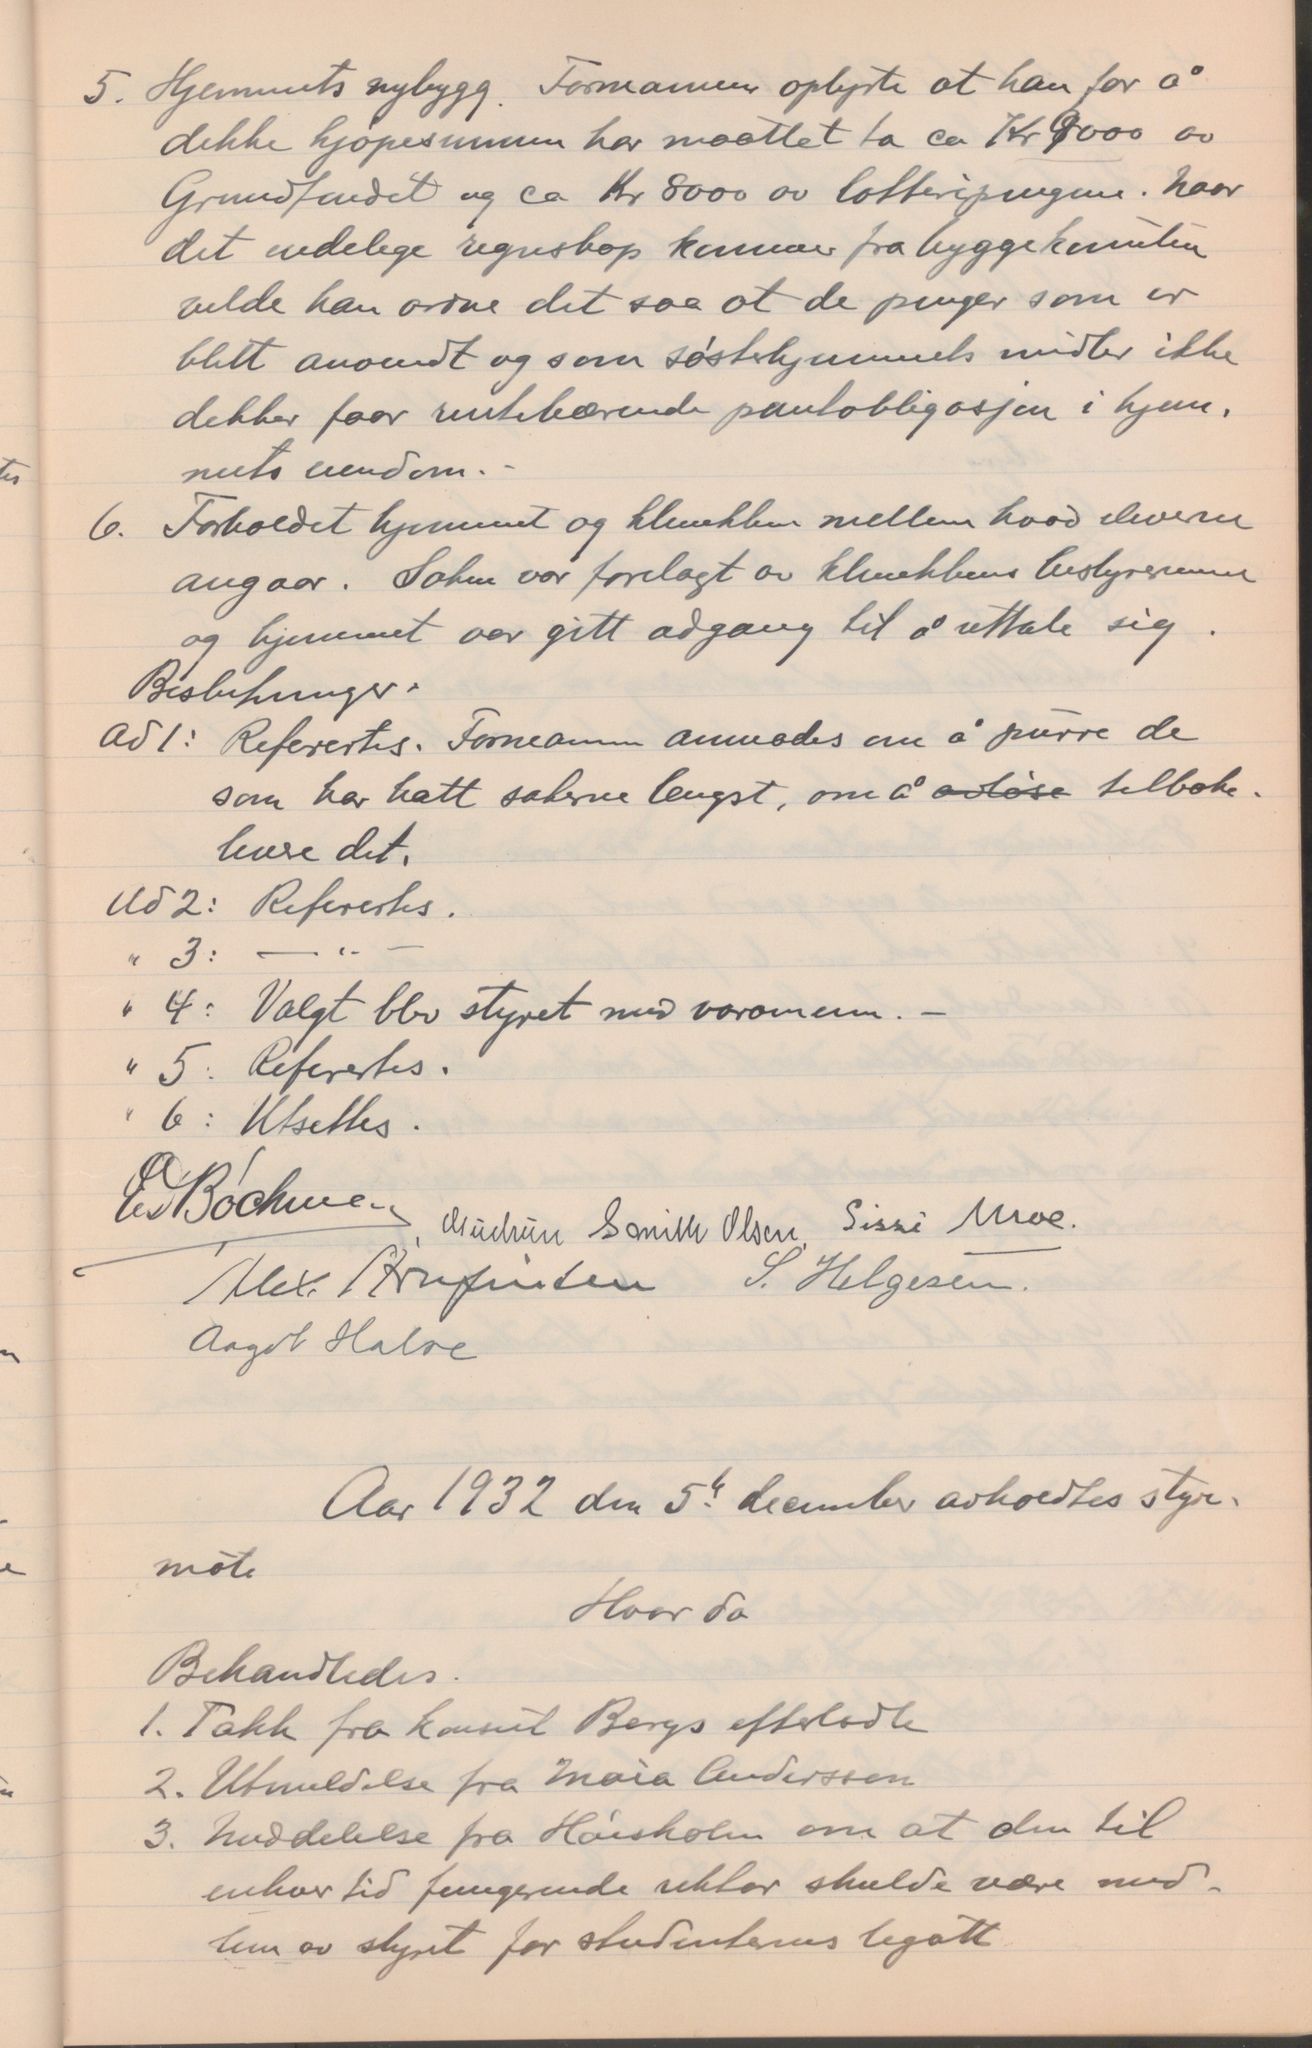 5. Hjemmets nybygg. Formannen oplyste at han for å
dekke kjøpesummen har maattet ta ca Kr 9000 av
Grundfondet og ca Kr 8000 av lotteripengene. Naar
det endelege regnskap kommer fra byggekomiteen
vilde han ordne det saa at de penger som er
blitt anvendt og som søsterhjemmets midler ikke
dekker faar rentebærende pantobligasjon i hjem-
mets eiendom. -
6. Forholdet hjemmet og klinikken mellem hvad elevene
angaar. Saken var forelagt av klinikkens bestyrerinne
og hjemmet var gitt adgang til å uttale sig.
Beslutninger.
Ad 1: Referertes. Formannen anmodes om å purre de
som har hatt sakerne lengst, om å avløse tilbake-
levere det.
Ad 2: Referertes.
" 3: — " —
" 4: Valgt blev styret med varamenn. -
" 5: Referertes.
" 6: Utsettes.
Bochman, Gudrun Smith Olsen, Sissi Moe.
Alex. Arnfinsen S. Helgesen.
Aagot Halse
Aar 1932 den 5te december avholdtes styre-
møte
Hvor da
Behandledes.
1. Takk fra konsul Bergs efterladte
2. Utmeldelse fra Maia Anderssen
3. Meddelelse fra Høisholm om at den til
enhver tid fungerende rektor skulde være med-
lem av styret for studenternes legatt